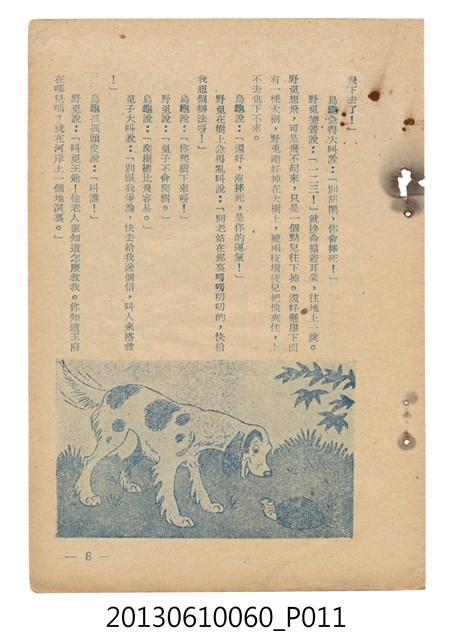 飛下去了！」
烏龜急得大叫說：「別胡鬧，你會摔死！」
野兎笑着說：「一二三！」就拚命搧着耳朵，往地上一跳。
野兎想飛，可是飛不起來，只是一個勁兒往下掉。還好懸崖下面
有一棵大樹，野兎剛好掉在大樹上，被兩枝樹枝兒把他夾住，上
不去也下不來。
烏龜說：「還好，沒摔死，是你的運氣！」
野兎在樹上急得亂叫說：「別老站在那裏嘮嘮叨叨的，快給
我想個辦法呀！」
烏龜說：「你爬下來呀！」
野兎說：「兎子不會爬樹。」
烏龜說：「爬樹總比飛容易。」
兎子大叫說：「別跟我爭論，快去給我送個信，叫人來搭救
！」
烏龜抓抓頭皮說：「叫誰！」
野兎說：「叫兎王爺！他老人家知道怎麼救我。你知道王府
在哪兒嗎？就在河岸上一個地洞裏。」
— 8 —
20130610060_P011